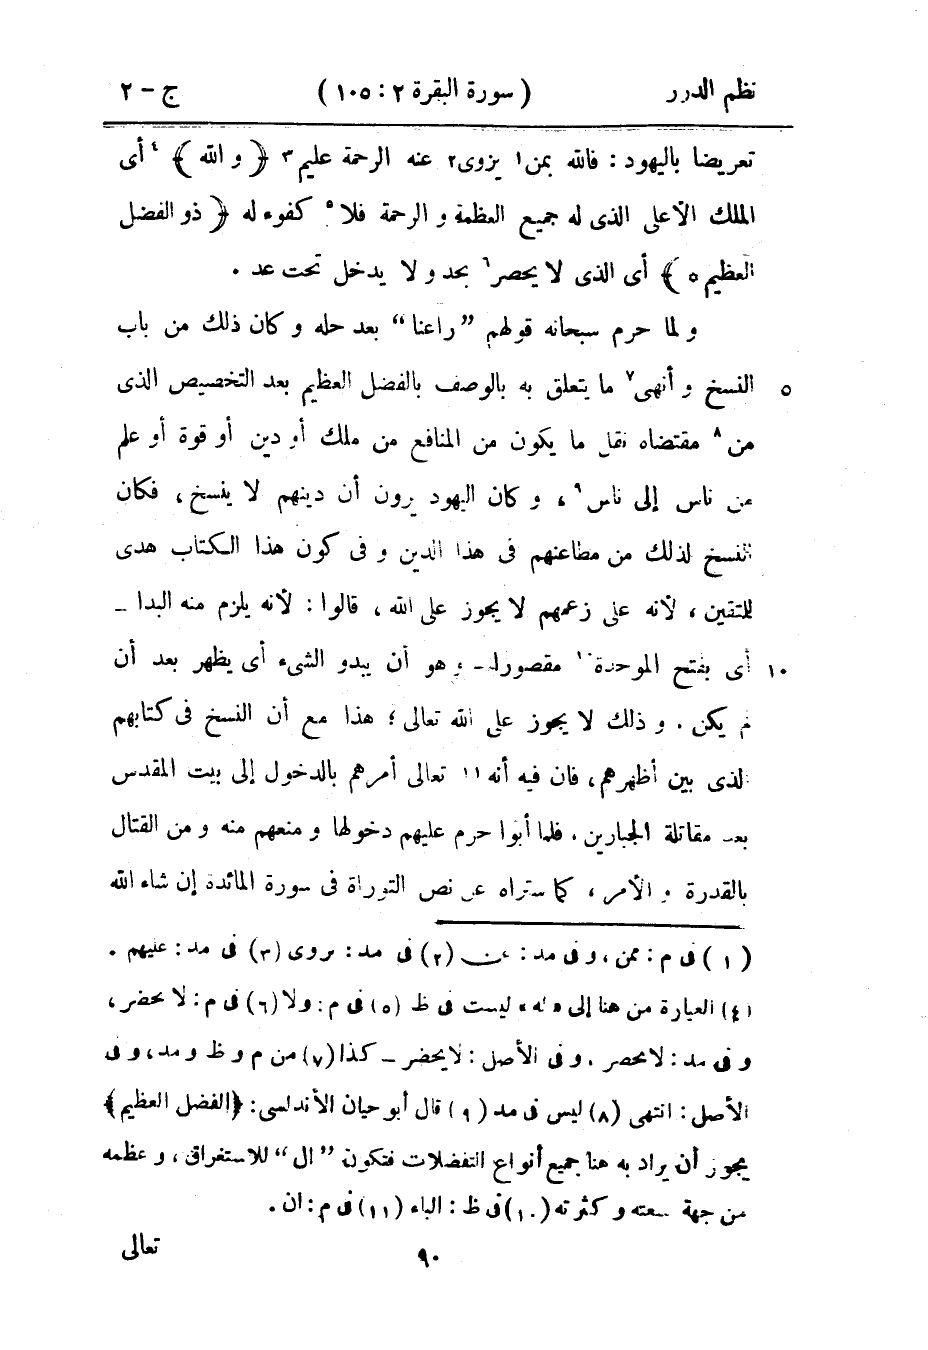 نظم الدرر ( سورة البقرة ٢ : ١٠٥ ) ج - ٢
تعريضا باليهود : فالله بمن١ يزوى٢ عنه الرحمة عليم٣ ﴿ و الله ﴾ ٤ أى
الملك الأعلى الذى له جميع العظمة و الرحمة فلا ٥ كفوء له ﴿ ذو الفضل
العظيم ٥ ﴾ أى الذى لا يحصر٦ بحد و لا يدخل تحت عد .
و لما حرم سبحانه قولهم ”راعنا“ بعد حله و كان ذلك من باب
النسخ و أنهى٧ ما يتعلق به بالوصف بالفضل العظيم بعد التخصيص الذى ٥
من ٨ مقتضاه نقل ما يكون من المنافع من ملك أو دين أو قوة أو علم
من ناس إلى ناس٩ ، و كان اليهود يرون أن دينهم لا ينسخ ، فكان
النسخ لذلك من مطاعنهم فى هذا الدين و فى كون هذا الكتاب هدى
للتقين ، لأنه على زعمهم لا يجوز على الله ، قالوا : لأنه يلزم منه البدا _
أى بفتح الموحدة١٠ مقصورا _ و هو أن يبدو الشىء أى يظهر بعد أن ١٠
لم يكن . و ذلك لا يجوز على الله تعالى ؛ هذا مع أن النسخ فى كتابهم
الذى بين أظهرهم ، فان فيه أنه ١١ تعالى أمرهم بالدخول إلى بيت المقدس
بعد مقاتلة الجبارين ، فلما أبوا حرم عليهم دخولها و منعهم منه و من القتال
بالقدرة و الأمر ، كما ستراه عن نص التوراة فى سورة المائدة إن شاء الله
(١) فى م : ممن ، و فى مد : عن (٢) فى مد : يروى (٣) فى مد : عليهم .
(٤) العبارة من هنا إلى « له » ليست فى ظ (٥) فى م : ولا (٦) فى م : لا يحضر ،
و فى مد : لا يحصر . و فى الأصل : لا يحضر _ كذا (٧) من م و ظ و مد ، و فى
الأصل : انتهى (٨) ليس فى مد (٩) قال أبو حيان الأندلسى : ﴿الفضل العظيم﴾
يجوز أن يراد به هنا جميع أنواع التفضلات فتكون ”ال“ للاستغراق ، و عظمه
من جهة سعته و كثرته (١٠) فى ظ : الباء (١١) فى م : ان .
٩٠ تعالى